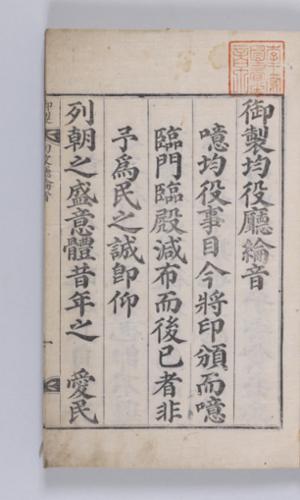 御製均役廳綸音
噫均役事目今將印頒而噫
臨門臨殿減布而後已者非
予爲民之誠卽仰
列朝之盛意體昔年之 愛民